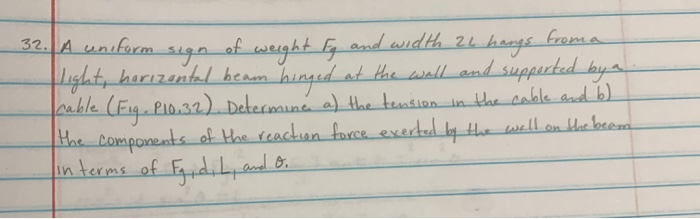 32. A uniform sign of weight Fg and width 2L hangs from a
light, horizontal beam hinged at the wall and supported by a
cable (Fig. P10.32). Determine a) the tension in the cable and b)
the components of the reaction force exerted by the wall on the beam
in terms of Fg, d, L, and θ.